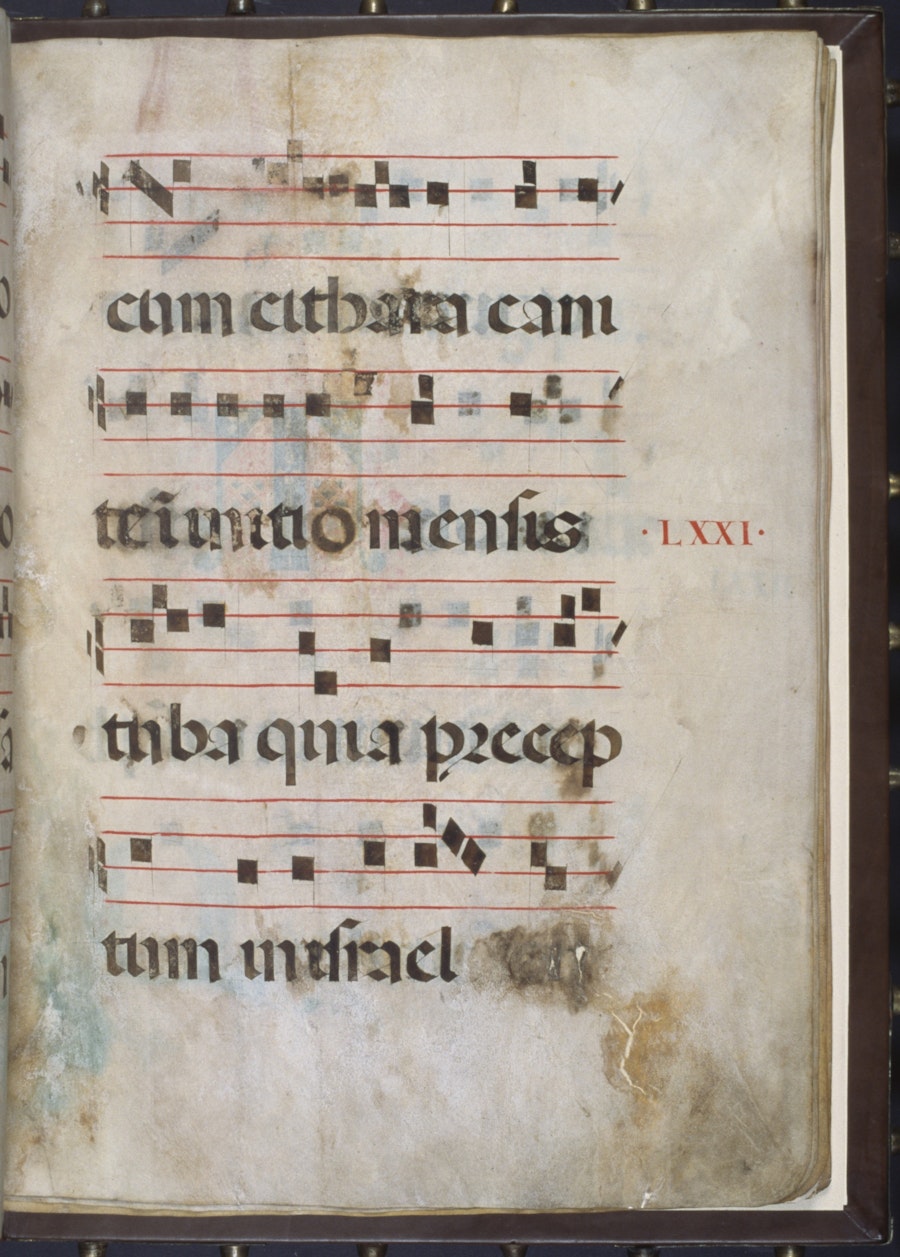 cum cithara cani
te ī initio mensis
·LXXI·
tuba quia precep
tum in israel